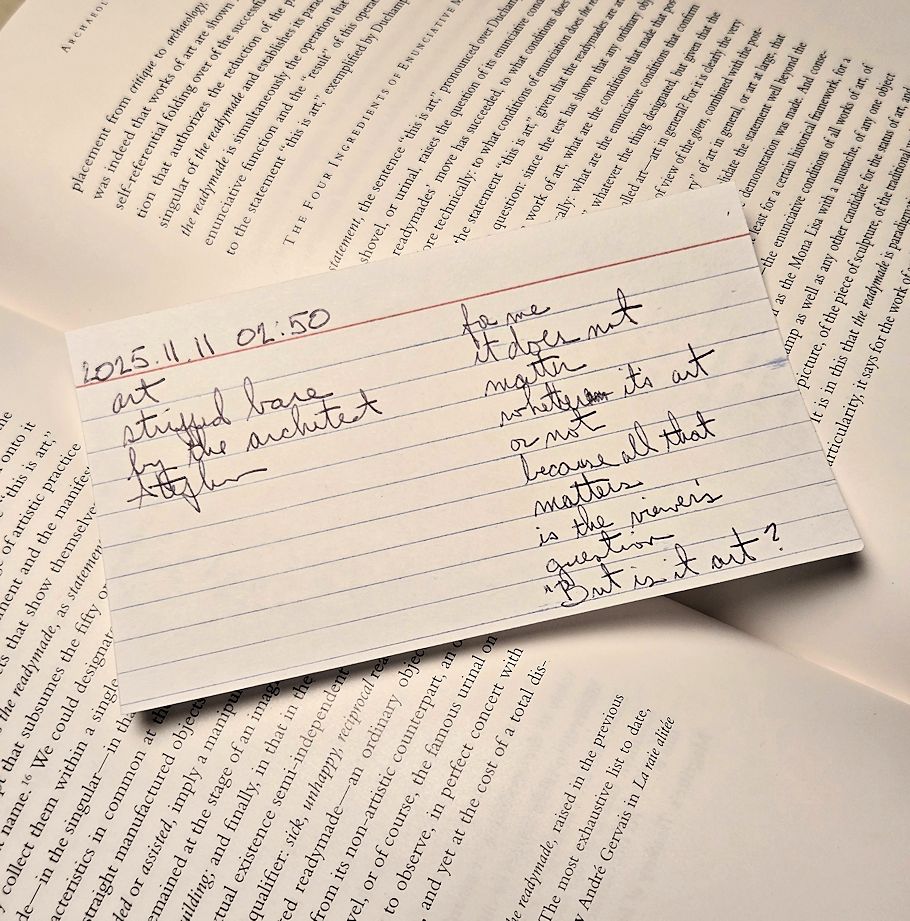 ARCHAEOL
placement from critique to archaeology,
was indeed that works of art are shown
self-referential folding over of the successful
tion that authorizes the reduction of the
singular of the readymade and establishes its para
the readymade is simultaneously the operation that
enunciative function and the "result" of this opera
to the statement "this is art," exemplified by Duchamp
THE FOUR INGREDIENTS OF ENUNCIATIVE M
statement, the sentence "this is art," pronounced over Ducham
shovel, or urinal, raises the question of its enunciative cond
readymades' move has succeeded, to what conditions does
re technically: to what conditions of enunciation does the re
the statement "this is art," given that the readymades are
question: since the test has shown that any ordinary obj
work of art, what are the conditions that made that pos
ally: what are the enunciative conditions that confirm
whatever the thing designated, but given that the
lled art—art in general? For it is clearly the very
of view of the given, combined with the post-
y" of art in general, or art at large, that
idate the statement well beyond the
demonstration was made. And conse-
least for a certain historical framework, for a
the enunciative conditions of all works of art, of
as the Mona Lisa with a mustache, of any one object
mp as well as any other candidate for the status of art, and
picture, of the piece of sculpture, of the traditional
It is in this that the readymade is paradigm
articularity, it says for the work of
2025.11.11 02:50
art
stripped bare
by the architect
Stephen
for me
it does not
matter
whether it's art
or not
because all that
matters
is the viewer's
question
"But is it art?
the
onto it
"this is art,"
of artistic practice
nent and the manifes
ets that show themselve
the readymade, as statemen
pt that subsumes the fifty o
name.16 We could designate
collect them within a single
de—in the singular—in tha
acteristics in common at the
raight manufactured objects
ded or assisted, imply a manipu
emained at the stage of an imag
uilding; and finally, in that in the
tual existence semi-independent
qualifier: sick, unhappy, reciprocal rea
ed readymade—an ordinary objec
from its non-artistic counterpart, an o
vel, or of course, the famous urinal on
to observe, in perfect concert with
and yet at the cost of a total dis-
the readymade, raised in the previous
The most exhaustive list to date,
y André Gervais in La raie alitée